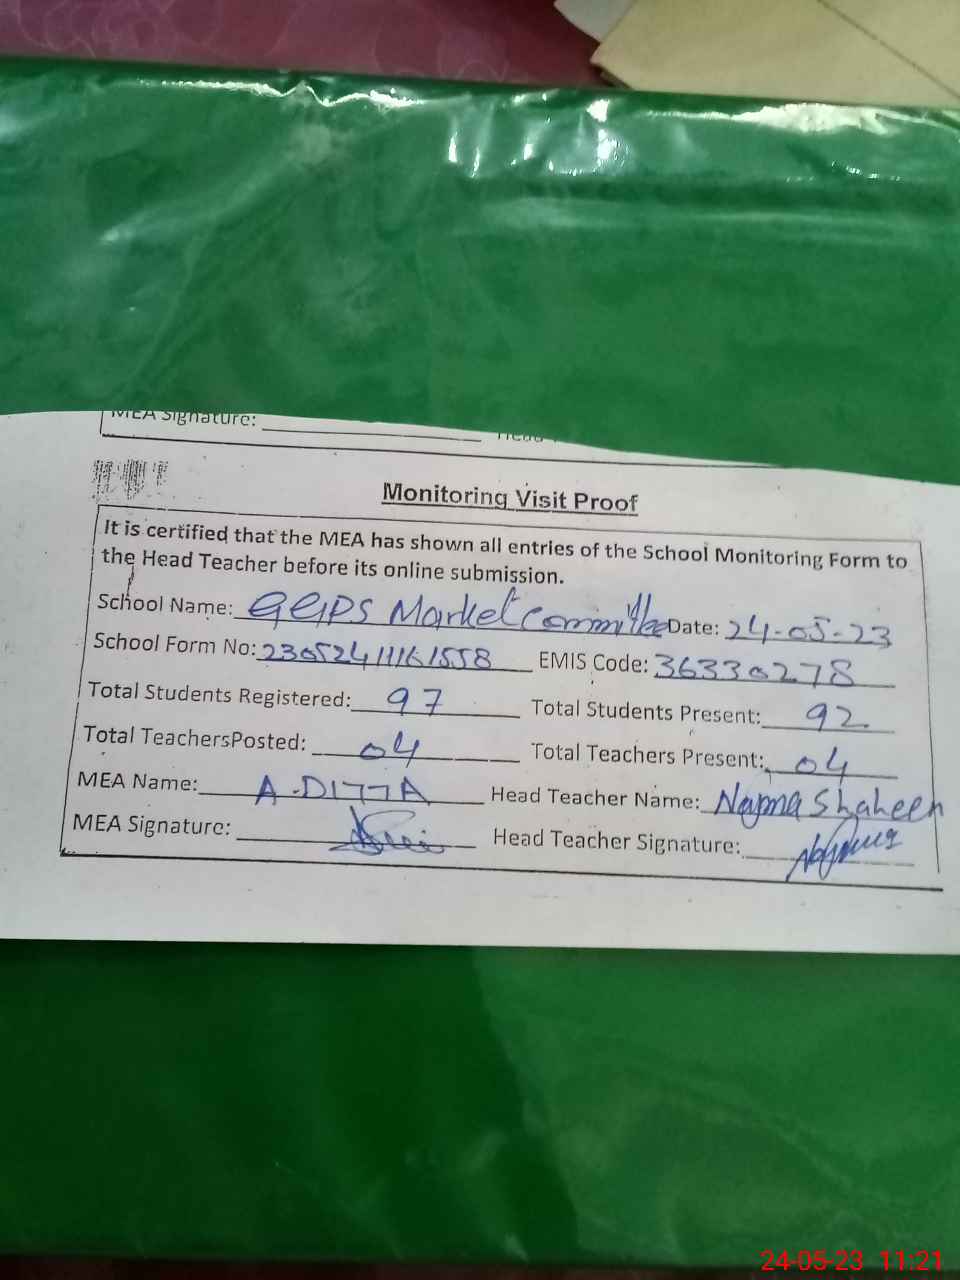 MEA Signature:
Monitoring Visit Proof
It is certified that the MEA has shown all entries of the School Monitoring Form to
the Head Teacher before its online submission.
School Name: GGPS Market Committee Date: 24-05-23
School Form No: 23052411161558 EMIS Code: 36330278
Total Students Registered: 97 Total Students Present: 92
Total TeachersPosted: 04 Total Teachers Present: 04
MEA Name: A.DITTA Head Teacher Name: Najma Shaheen
MEA Signature: Head Teacher Signature:
24-05-23 11:21